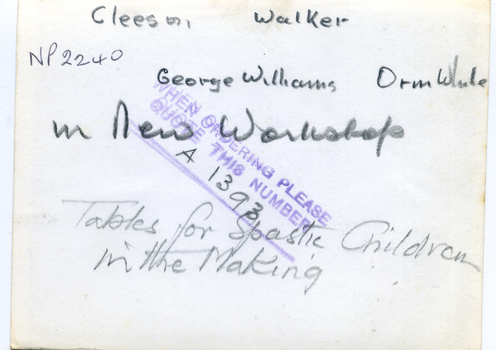 Cleeson, Walker
NP2240
George Williams Orm
in New Workshop
WHEN ORDERING PLEASE
QUOTE THIS NUMBER
A 1393
Tables for Spastic Children
in the Making